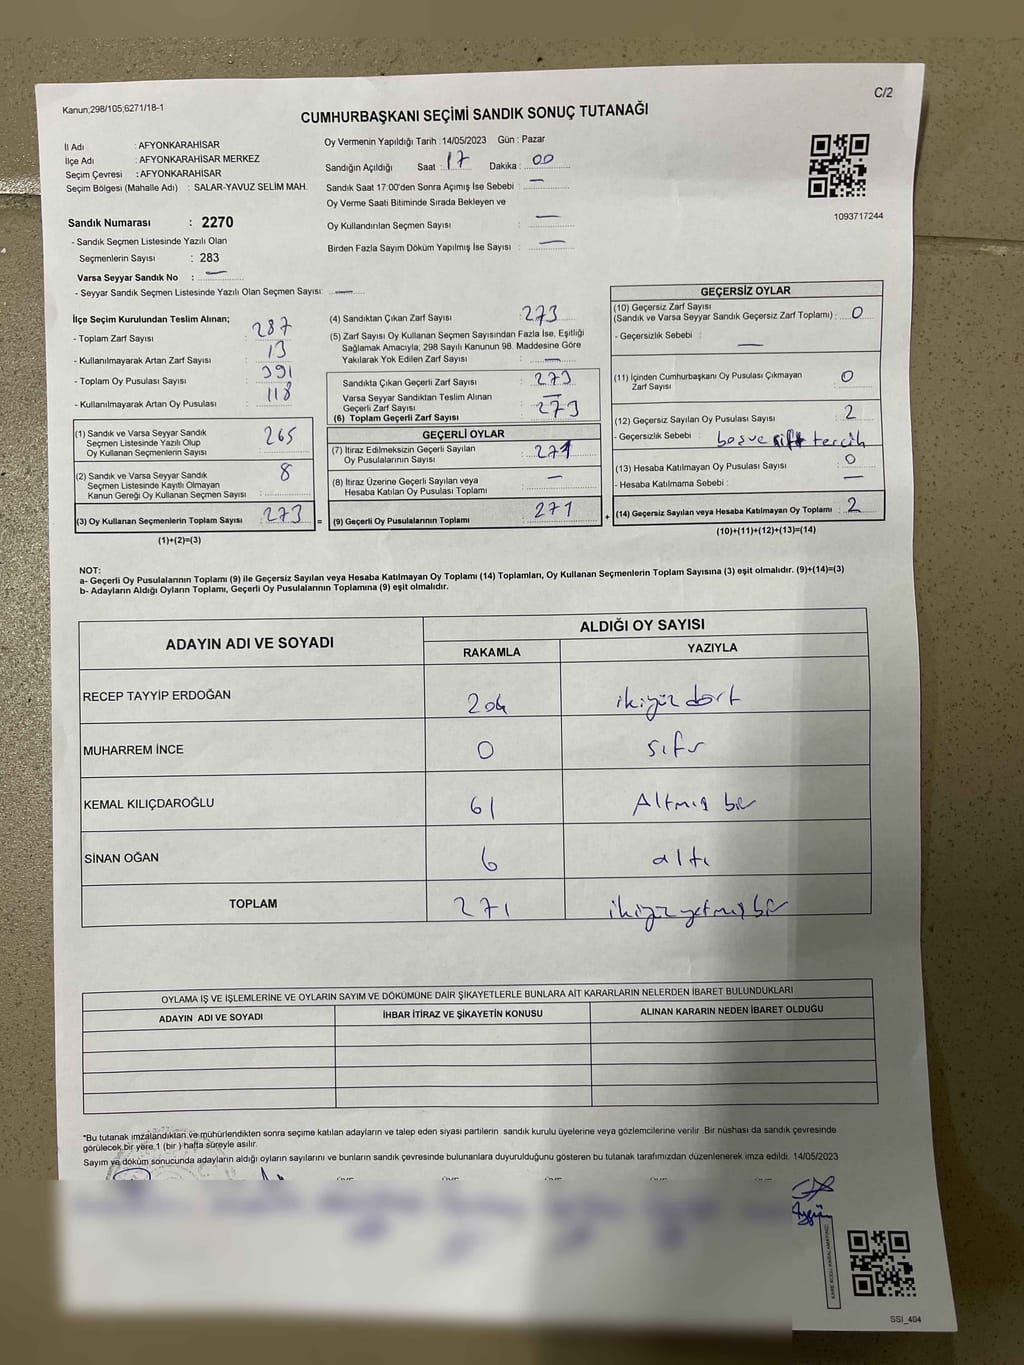 Kanun;298/105;6271/18-1
C/2
CUMHURBAŞKANI SEÇİMİ SANDIK SONUÇ TUTANAĞI
İl Adı : AFYONKARAHİSAR
İlçe Adı : AFYONKARAHİSAR MERKEZ
Seçim Çevresi : AFYONKARAHİSAR
Seçim Bölgesi (Mahalle Adı) : SALAR-YAVUZ SELİM MAH.
Sandık Numarası : 2270
- Sandık Seçmen Listesinde Yazılı Olan
Seçmenlerin Sayısı : 283
Varsa Seyyar Sandık No : —
- Seyyar Sandık Seçmen Listesinde Yazılı Olan Seçmen Sayısı: —
Oy Vermenin Yapıldığı Tarih : 14/05/2023 Gün : Pazar
Sandığın Açıldığı Saat : 17 Dakika : 00
Sandık Saat 17:00'den Sonra Açımış İse Sebebi : —
Oy Verme Saati Bitiminde Sırada Bekleyen ve
Oy Kullandırılan Seçmen Sayısı : —
Birden Fazla Sayım Döküm Yapılmış İse Sayısı : —
1093717244
İlçe Seçim Kurulundan Teslim Alınan;
- Toplam Zarf Sayısı : 287
- Kullanılmayarak Artan Zarf Sayısı : 13
- Toplam Oy Pusulası Sayısı : 391
- Kullanılmayarak Artan Oy Pusulası : 118
(1) Sandık ve Varsa Seyyar Sandık
Seçmen Listesinde Yazılı Olup
Oy Kullanan Seçmenlerin Sayısı : 265
(2) Sandık ve Varsa Seyyar Sandık
Seçmen Listesinde Kayıtlı Olmayan
Kanun Gereği Oy Kullanan Seçmen Sayısı : 8
(3) Oy Kullanan Seçmenlerin Toplam Sayısı : 273 =
(1)+(2)=(3)
(4) Sandıktan Çıkan Zarf Sayısı : 273
(5) Zarf Sayısı Oy Kullanan Seçmen Sayısından Fazla İse, Eşitliği
Sağlamak Amacıyla; 298 Sayılı Kanunun 98. Maddesine Göre
Yakılarak Yok Edilen Zarf Sayısı : —
Sandıkta Çıkan Geçerli Zarf Sayısı : 273
Varsa Seyyar Sandıktan Teslim Alınan
Geçerli Zarf Sayısı : —
(6) Toplam Geçerli Zarf Sayısı : 273
GEÇERLİ OYLAR
(7) İtiraz Edilmeksizin Geçerli Sayılan
Oy Pusulalarının Sayısı : 271
(8) İtiraz Üzerine Geçerli Sayılan veya
Hesaba Katılan Oy Pusulası Toplamı : —
(9) Geçerli Oy Pusulalarının Toplamı : 271 +
GEÇERSİZ OYLAR
(10) Geçersiz Zarf Sayısı
(Sandık ve Varsa Seyyar Sandık Geçersiz Zarf Toplamı) : 0
- Geçersizlik Sebebi : —
(11) İçinden Cumhurbaşkanı Oy Pusulası Çıkmayan
Zarf Sayısı : 0
(12) Geçersiz Sayılan Oy Pusulası Sayısı : 2
- Geçersizlik Sebebi : boş ve çift tercih
(13) Hesaba Katılmayan Oy Pusulası Sayısı : 0
- Hesaba Katılmama Sebebi : —
(14) Geçersiz Sayılan veya Hesaba Katılmayan Oy Toplamı : 2
(10)+(11)+(12)+(13)=(14)
NOT:
a- Geçerli Oy Pusulalarının Toplamı (9) ile Geçersiz Sayılan veya Hesaba Katılmayan Oy Toplamı (14) Toplamları, Oy Kullanan Seçmenlerin Toplam Sayısına (3) eşit olmalıdır. (9)+(14)=(3)
b- Adayların Aldığı Oyların Toplamı, Geçerli Oy Pusulalarının Toplamına (9) eşit olmalıdır.
ADAYIN ADI VE SOYADI
ALDIĞI OY SAYISI
RAKAMLA YAZIYLA
RECEP TAYYİP ERDOĞAN 204 ikiyüz dört
MUHARREM İNCE 0 sıfır
KEMAL KILIÇDAROĞLU 61 Altmış bir
SİNAN OĞAN 6 altı
TOPLAM 271 ikiyüz yetmiş bir
OYLAMA İŞ VE İŞLEMLERİNE VE OYLARIN SAYIM VE DÖKÜMÜNE DAİR ŞİKAYETLERLE BUNLARA AİT KARARLARIN NELERDEN İBARET BULUNDUKLARI
ADAYIN ADI VE SOYADI İHBAR İTİRAZ VE ŞİKAYETİN KONUSU ALINAN KARARIN NEDEN İBARET OLDUĞU
*Bu tutanak imzalandıktan ve mühürlendikten sonra seçime katılan adayların ve talep eden siyasi partilerin sandık kurulu üyelerine veya gözlemcilerine verilir. Bir nüshası da sandık çevresinde
görülecek bir yere 1 (bir ) hafta süreyle asılır.
Sayım ve döküm sonucunda adayların aldığı oyların sayılarını ve bunların sandık çevresinde bulunanlara duyurulduğunu gösteren bu tutanak tarafımızdan düzenlenerek imza edildi. 14/05/2023
SSI_404